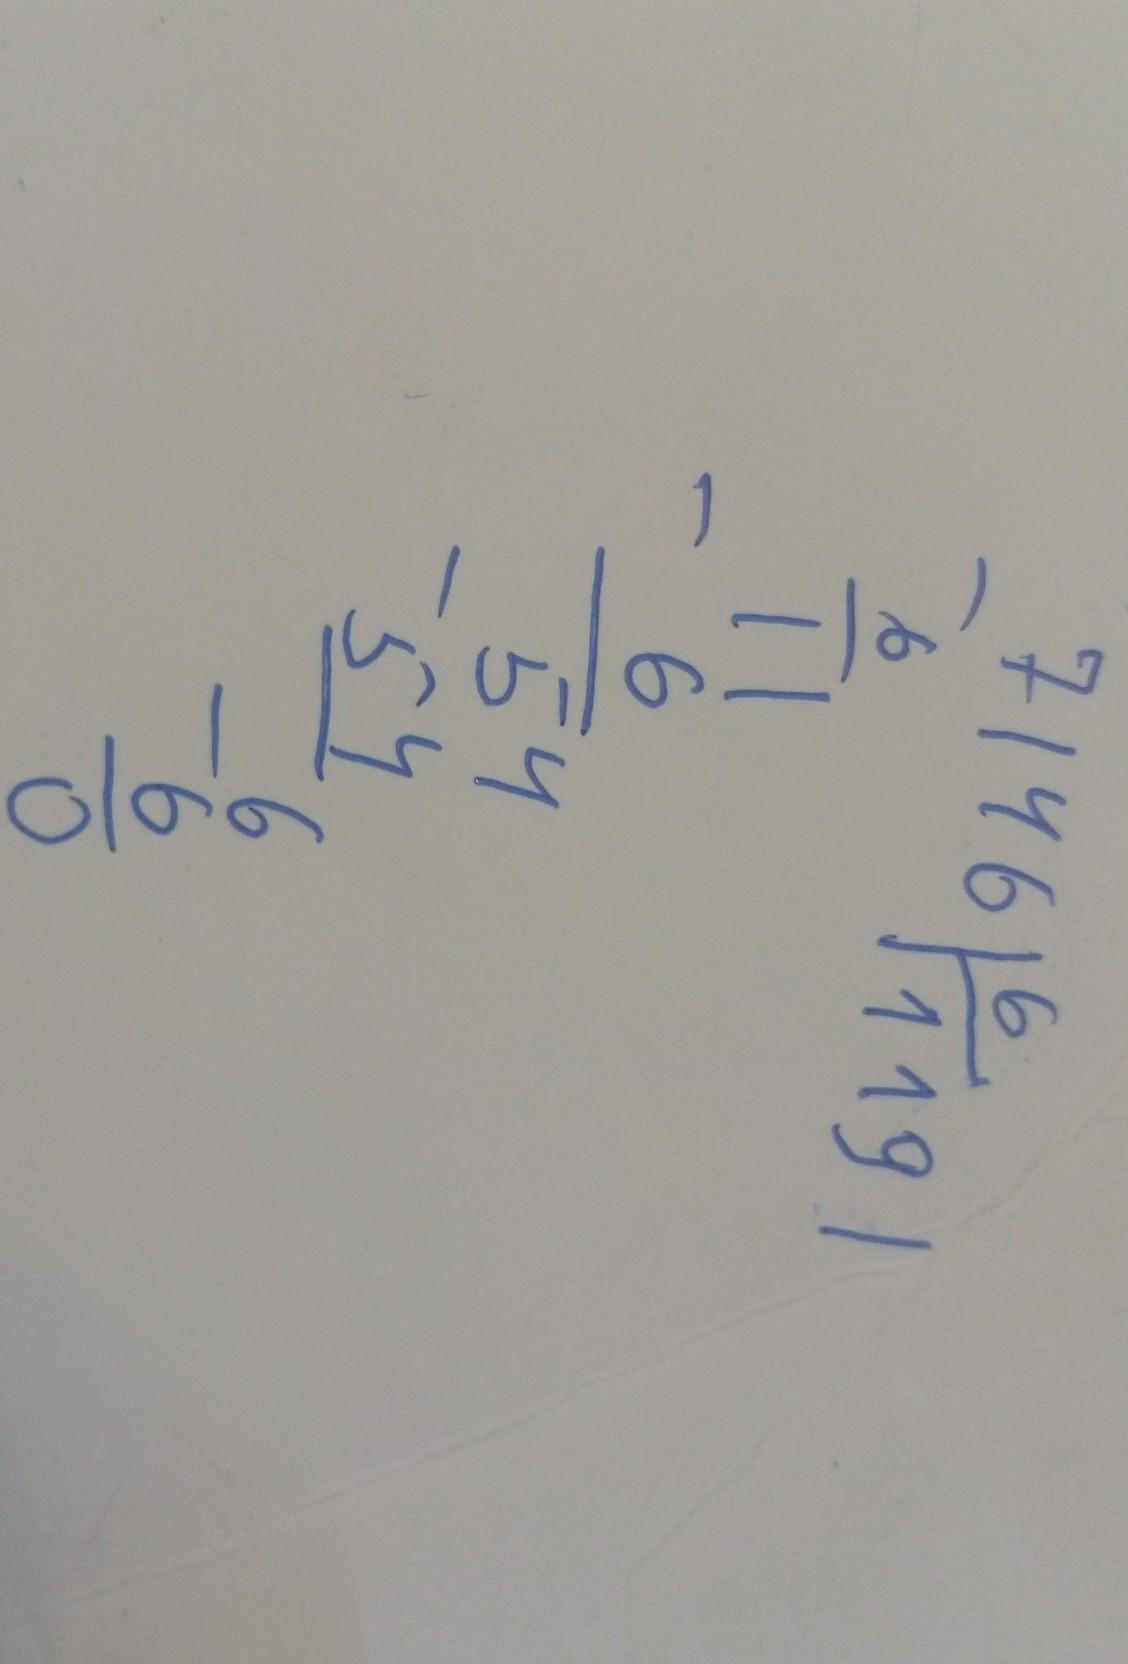 7146 | 6
- 6 1191
11
- 6
54
- 54
6
- 6
0